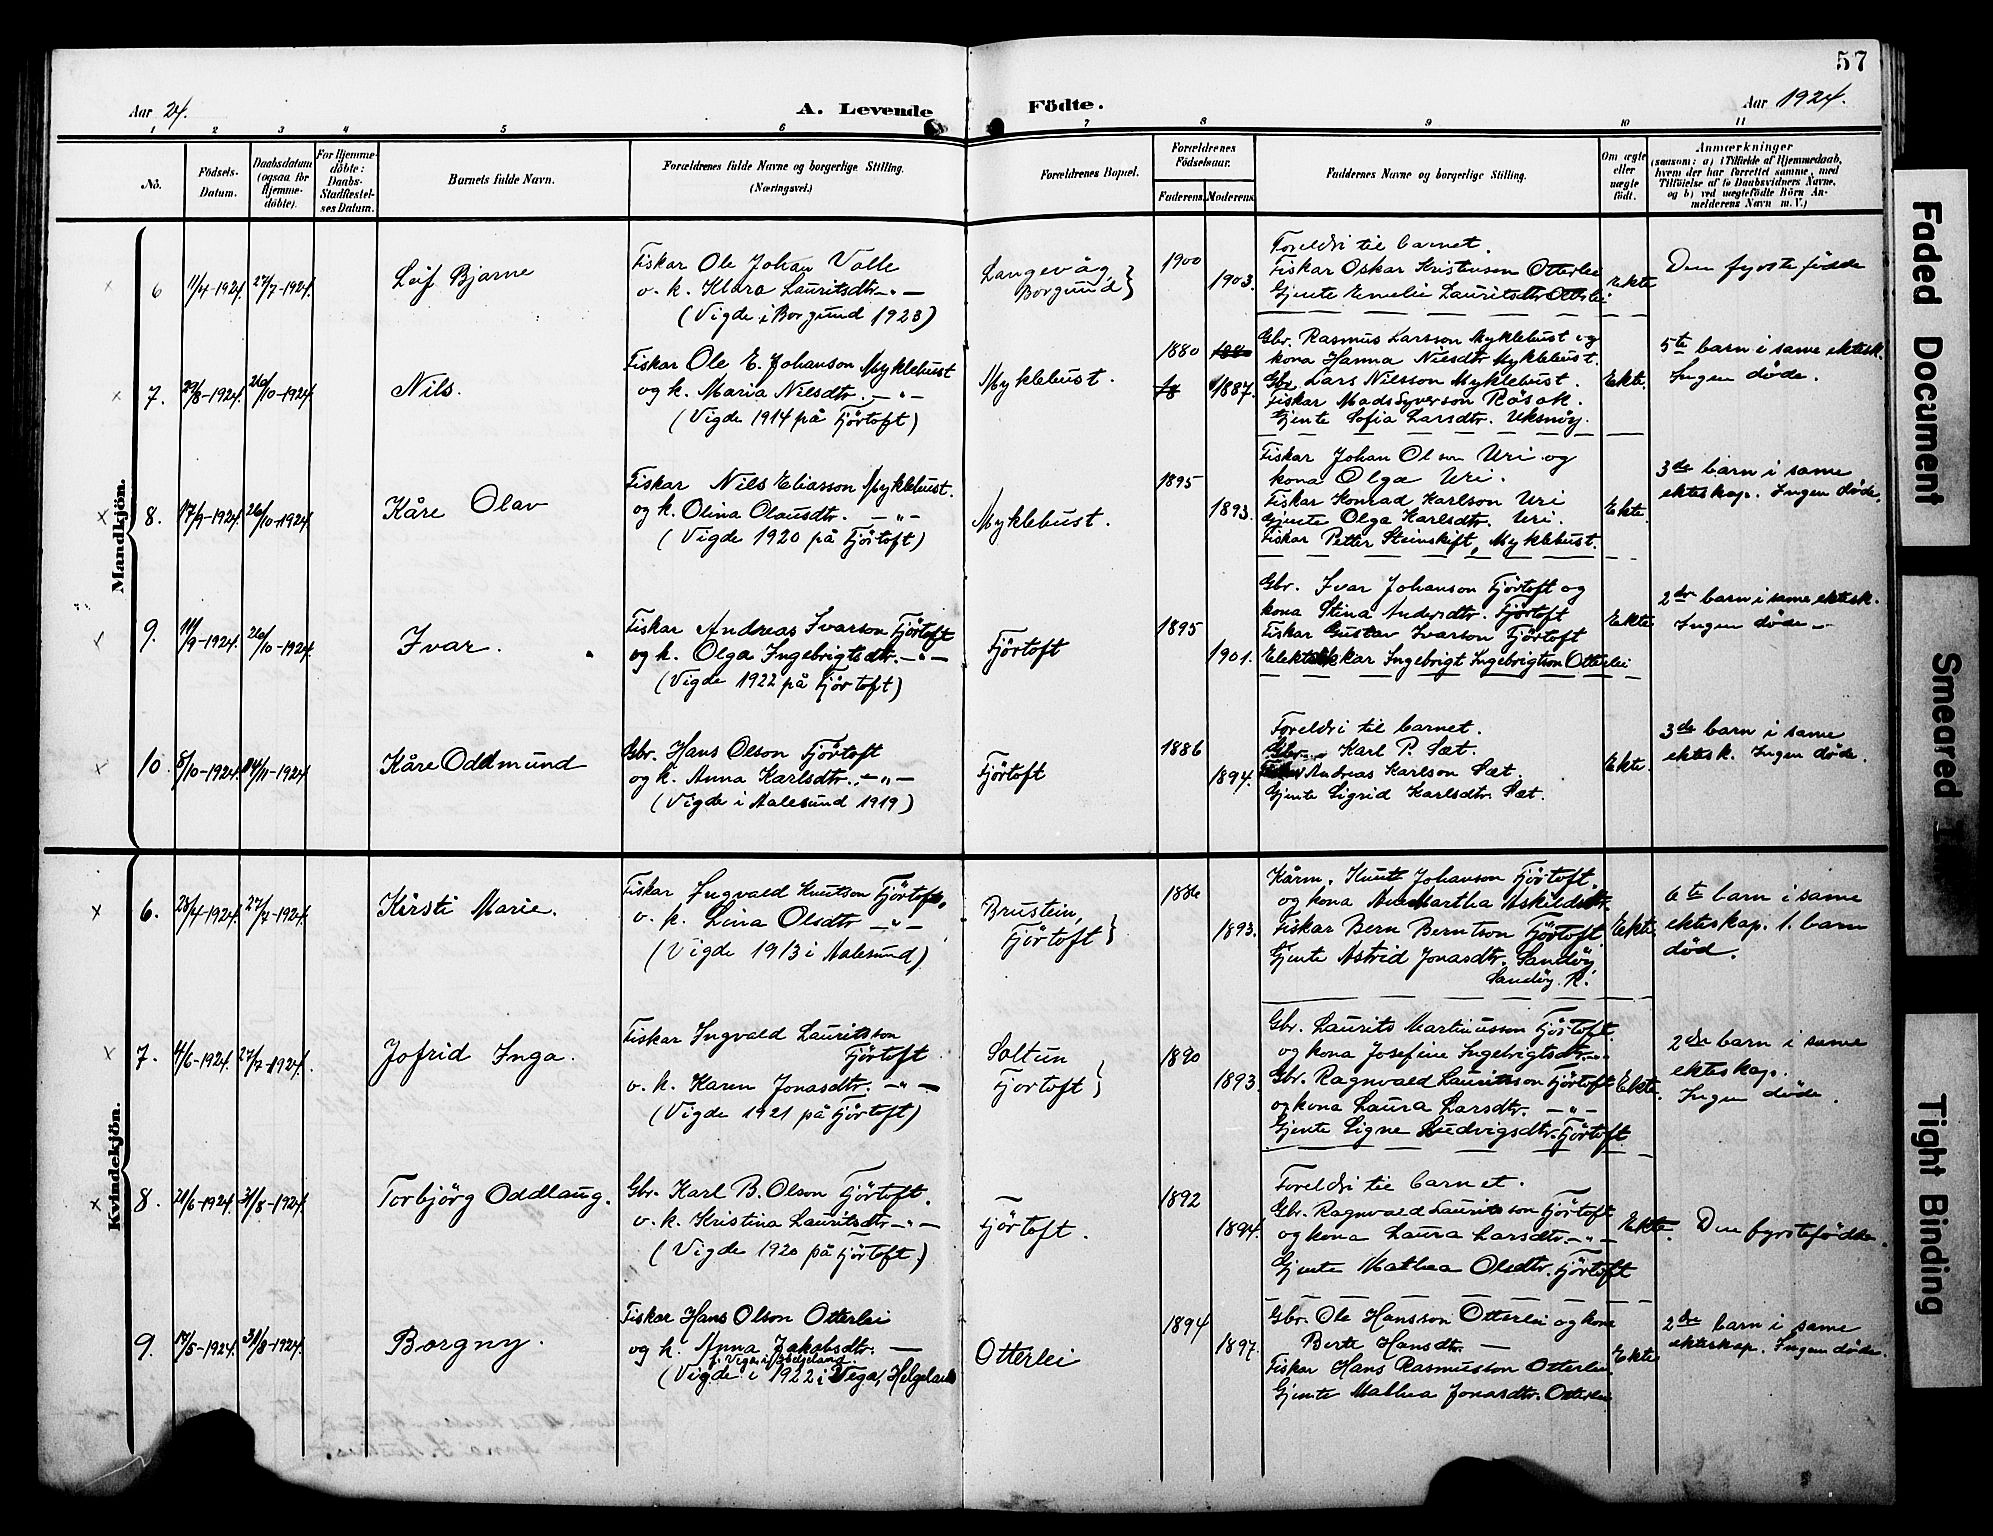 57
Aar 24.
A. Levende Födte.
Aar 1924.
1 2 3 4 5 6 7 8 9 10 11
No.
Födsels-Datum.
Daabsdatum (ogsaa for Hjemme-döbte).
For Hjemme-döbte: Daabs-Stadfestel-ses Datum.
Barnets fulde Navn.
Forældrenes fulde Navne og borgerlige Stilling.
(Næringsvei.)
Forældrenes Bopæl.
Forældrenes Födselsaar.
Faderens. Moderens.
Faddernes Navne og borgerlige Stilling.
Om ægte eller uægte födt.
Anmærkninger
(saasom: a) i Tilfælde af Hjemmedaab, hvem der har forrettet samme, med Tilföielse af to Daabsvidners Navne, og b) ved uægtefödte Börn An-melderens Navn m. V.)
Mandkjön.
6 11/4-1924. 27/7-1924. Leif Bjarne
Fiskar Ole Johan Valle
o. k. Klara Lauritsdtr. -"-
(Vigde i Borgund 1923)
Langevåg,
Borgund}
1900
1903.
Foreldri til barnet.
Fiskar Oskar Kristenson Otterlei
Gjente Emelie Lauritsdtr Otterlei
Ekte
Den fyrstefödde
7. 29/8-1924. 26/10-1924. Nils.
Fiskar Ole E. Johanson Myklebust
og k. Maria Nilsdtr. -"-
(Vigde 1914 på Fjörtoft)
Myklebust.
1880
1887.
Gbr. Rasmus Larsson Myklebust og
kona Hanna Nilsdtr Myklebust.
Gbr. Lars Nilsson Myklebust.
Fiskar Mads Syverson Rösok.
Gjente Sofia Larsdtr. Uksnöy.
Ekte.
5te barn i same ektesk.
Ingen döde.
8. 17/9-1924. 26/10-1924 Kåre Olav
Fiskar Nils Eliasson Myklebust.
og k. Olina Olausdtr. -"-
(Vigde 1920 på Fjörtoft)
Myklebust.
1895
1893.
Fiskar Johan Olson Uri og
kona Olga Uri.
Fiskar Konrad Karlson Uri
Gjente Olga Karlsdtr. Uri.
Fiskar Petter Steinskift, Myklebust.
Ekte.
3de barn i same
ekteskap. Ingen döde.
9. 11/9-1924. 26/10-1924 Ivar.
Fiskar Andreas Ivarson Fjörtoft
og k. Olga Ingebrigtsdtr. -"-
(Vigde 1922 på Fjörtoft)
Fjörtoft
1895
1901.
Gbr. Ivar Johanson Fjörtoft og
kona Stina Andersdtr. Fjörtoft
Fiskar Gustav Ivarson Fjörtoft
Ingebrigt Ingebrigtson Otterlei
Ekte
2dre barn i same ektesk.
Ingen döde -
10. 8/10-1924. 4/11-1924 Kåre Oddmund
Gbr. Hans Olson Fjörtoft
og k. Anna Karlsdtr. -"-
(Vigde i Aalesund 1919)
Fjörtoft
1886
1894.
Foreldri til barnet.
Gbr. Karl P. Sæt.
Andreas Karlson Sæt.
Gjente Sigrid Karlsdtr. Sæt.
Ekte.
3de barn i same
ektesk. Ingen döde.
Kvindekjön.
6. 28/4-1924. 27/7-1924. Kirsti Marie.
Fiskar Ingvald Knutson Fjörtoft,
o. k. Lina Olsdtr -"-
(Vigde 1913 i Aalesund)
Brustein,
Fjörtoft}
1886
1893.
Kårm. Knut Johanson Fjörtoft.
og kona Ane Martha Askildsdtr.
Fiskar Bern Berntson Fjörtoft
Gjente Astrid Jonasdtr. Sandöy
Sandöy.
Ekte
6te barn i same
ekteskap. 1. barn
död.
7. 4/6-1924. 27/7-1924. Jofrid Inga.
Fiskar Ingvald Lauritsson
Fjörtoft
o. k. Karen Jonasdtr. -"-
(Vigde 1921 på Fjörtoft)
Soltun
Fjortoft}
1890
1893.
Gbr. Laurits Martinusson Fjörtoft.
og kona Josefine Ingebrigtsdtr. -"-
Gbr. Ragnvald Lauritsson Fjörtoft
og kona Laura Larsdtr. -"-
Gjente Signe Ludvigsdtr. Fjörtoft
Ekte.
2dre barn i same
ekteskap.
Ingen döde.
8. 21/6-1924 31/8-1924. Torbjörg Oddlaug.
Gbr. Karl B. Olson Fjörtoft.
o. k. Kristina Lauritsdtr -"-
(Vigde 1920 på Fjörtoft.)
Fjörtoft.
1892
1894.
Foreldri til barnet.
Gbr. Ragnvald Lauritsson Fjörtoft
og kona Laura Larsdtr. -"-
Gjente Mathea Olsdtr. Fjörtoft
Ekte.
Den fyrstefödde.
9. 19/5-1924. 31/8-1924. Borgny.
Fiskar Hans Olson Otterlei
og k. Anna Jakobsdtr. -
f. Vega i Helgeland.
(Vigde i 1922 i Vega, Helgeland
Otterlei
1894
1897.
Gbr. Ole Hansson Otterlei og kona
Berte Hansdtr. -
Fiskar Hans Rasmusson Otterlei
Gjente Mathea Jonasdtr. Otterlei
Ekte
2dre barn i same
ekteskap. Ingen döde.
Faded Document
Smeared
Tight Binding